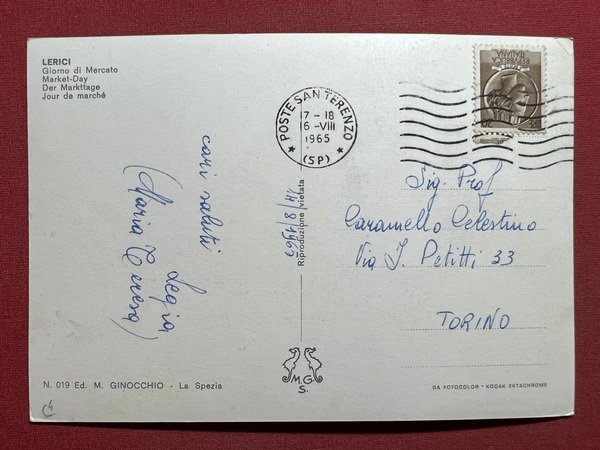 LERICI
Giorno di Mercato
Market-Day
Der Markttage
Jour de marché
POSTE SAN TERENZO
17-18
16-VIII
1965
(SP)
cari saluti
Legia
(Maria Teresa)
14/8/1965
Riproduzione vietata
Sig. Prof
Caramello Celestino
Via I. Petitti 33
TORINO
M G
S.
N. 019 Ed. M. GINOCCHIO - La Spezia
DA FOTOCOLOR - KODAK EKTACHROME